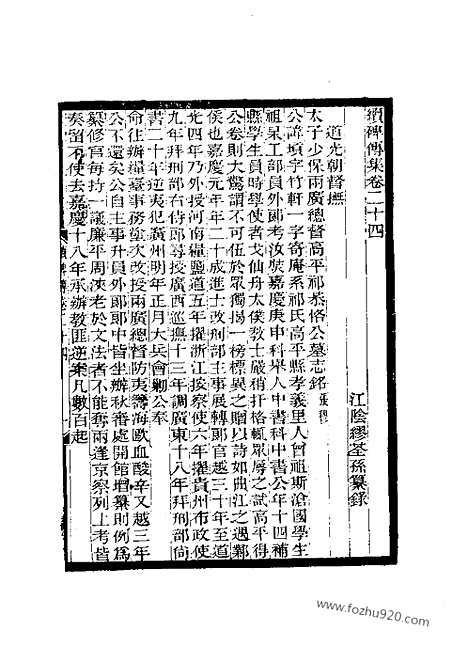 續碑傳集卷二十四
江陰繆荃孫纂錄
道光朝督撫
太子少保兩廣總督高平祁恭恪公墓志銘
公諱墳字竹軒一字寄庵系祁氏高平縣孝義里人曾祖斯滄國學生
祖杲工部員外郎考汝𡚒嘉慶庚申科舉人中書科中書公年十四補
縣學生員時學使者戈仙舟太僕敎士嚴稍扞格輒眾辱之試高平得
公卷則大驚謂不可伍於眾獨揭一榜標異之贈以詩如曲江之遇鄴
侯也嘉慶元年年二十成進士改刑部主事展轉郞官越三十年至道
光四年乃外授河南糧鹽道五年擢浙江按察使六年擢貴州布政使
九年拜刑部右侍郞尋授廣西巡撫十三年調廣東十八年拜刑部尙
書二十年逆夷犯廣州明年正月大兵會勦公奉
命往辦糧臺事務旋又改授兩廣總督防夷籌海歐血酸辛又越三年
公不還矣公自主事升員外郞郞中皆坐辦秋審處開館增纂則例爲
纂修官每持一議廉平周浹老於文法者不能奪兩逢京察列上考皆
奏留不使去嘉慶十八年承辦教匪逆案凡數百起
www.fozhu920.com